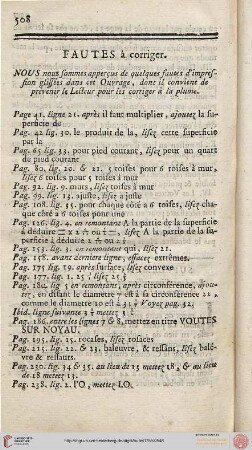 508
FAUTES à corriger.
NOUS nous sommes apperçus de quelques fautes d'impres-
sion glissées dans cet Ouvrage, dont il convient de
prévenir le Lecteur pour les corriger à la plume.
Page 41. ligne 21. après il faut multiplier, ajoutez la su-
perficie du
Pag. 42 lig. 30. le produit de la, lisez cette superficie
par la
Pag. 65 lig. 33. pour pied courant, lisez pour un quart
de pied courant
Pag. 80, lig. 20. & 21. 5 toises pour 6 toises à mur,
lisez 6 toises pour 5 toises à mur
Pag. 92. lig. 9. murs, lisez toises à mur
Pag. 99. lig. 13. ajuste, lisez a juste
Pag. 108. lig. 35. pour chaque côté à 6 toises, lisez cha-
que côté à 6 toises pour une
Pag. 126. lig. 4. en remontant A la partie de la superficie
à déduire, lisez A la partie de la su-
perficie à déduire
Pag. 153. lig. 3. en remontant qui, lisez 21.
Pag. 158. avant derniere ligne, effacez extrêmes.
Pag. 175 lig. 19. après surface, lisez convexe
Pag. 177. lig. 1. 25, lisez 25
Pag. 180. lig. 5 en remontant, après circonférence, ajou-
tez, en disant le diametre 7 est à sa circonférence 22,
comme le diametre 10 est à 31 Voyez pag. 32,
Ibid. ligne suivante 3 mettez 5
Pag. 186. entre les lignes 7 & 8. mettez en titre VOUTES
SUR NOYAU.
Pag. 195. lig. 25. rocales, lisez rosaces
Pag. 215. lig. 22. & 23. baleuvre, & ressans, lisez balê-
vre & ressauts.
Pag. 230. lig. 34 & 35. au lieu de 15 mettez 18, & au lieu
de 18 mettez 13.
Pag. 238. lig. 2. l'O, mettez LO.